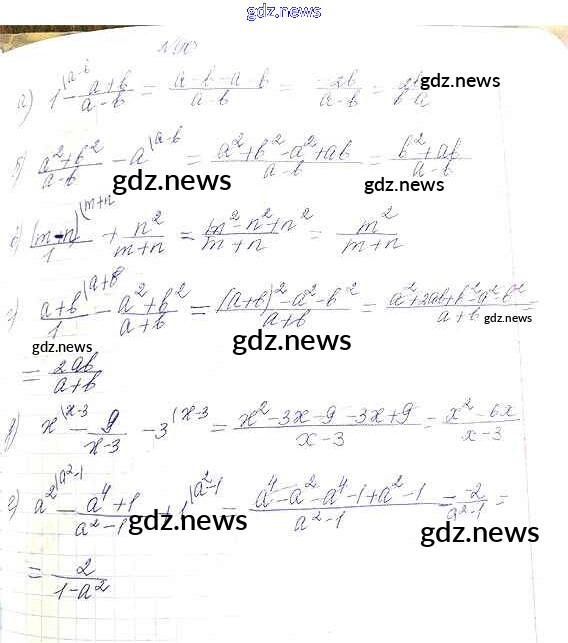 gdz.news
а) 1^{(a-b} - \frac{a+b}{a-b} = \frac{a-b-a-b}{a-b} = \frac{-2b}{a-b} = \frac{2b}{b-a}
gdz.news
б) \frac{a^2+b^2}{a-b} - a^{(a-b} = \frac{a^2+b^2-a^2+ab}{a-b} = \frac{b^2+ab}{a-b}
gdz.news gdz.news
в) \frac{(m-n)}{1}^{(m+n} + \frac{n^2}{m+n} = \frac{m^2-n^2+n^2}{m+n} = \frac{m^2}{m+n}
г) \frac{a+b}{1}^{(a+b} - \frac{a^2+b^2}{a+b} = \frac{(a+b)^2-a^2-b^2}{a+b} = \frac{a^2+2ab+b^2-a^2-b^2}{a+b} =
gdz.news gdz.news gdz.news
= \frac{2ab}{a+b}
x^{(x-3} - \frac{9}{x-3} - 3^{(x-3} = \frac{x^2-3x-9-3x+9}{x-3} = \frac{x^2-6x}{x-3}
е) a^{2(a^2-1} - \frac{a^4+1}{a^2-1} + 1^{(a^2-1} = \frac{a^4-a^2-a^4-1+a^2-1}{a^2-1} = \frac{-2}{a^2-1} =
gdz.news gdz.news
= \frac{2}{1-a^2}